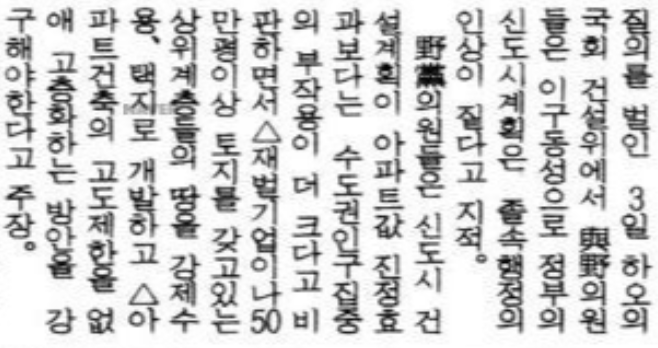 질의를 벌인 3일 하오의
국회 건설위에서 與野의원
들은 이구동성으로 정부의
신도시계획은 졸속행정의
인상이 짙다고 지적。
野黨의원들은 신도시 건
설계획이 아파트값 진정효
과보다는 수도권인구집중
의 부작용이 더 크다고 비
판하면서 △재벌기업이나 50
만평이상 토지를 갖고있는
상위계층들의 땅을 강제수
용、택지로 개발하고 △아
파트건축의 고도제한을 없
애 고층화하는 방안을 강
구해야한다고 주장。